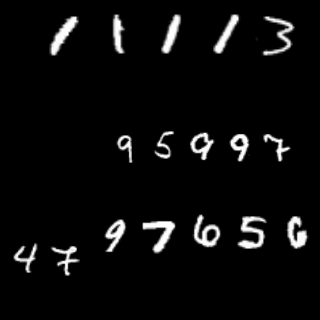 1 1 1 1 3
9 5 9 9 7
4 7 9 7 6 5 6